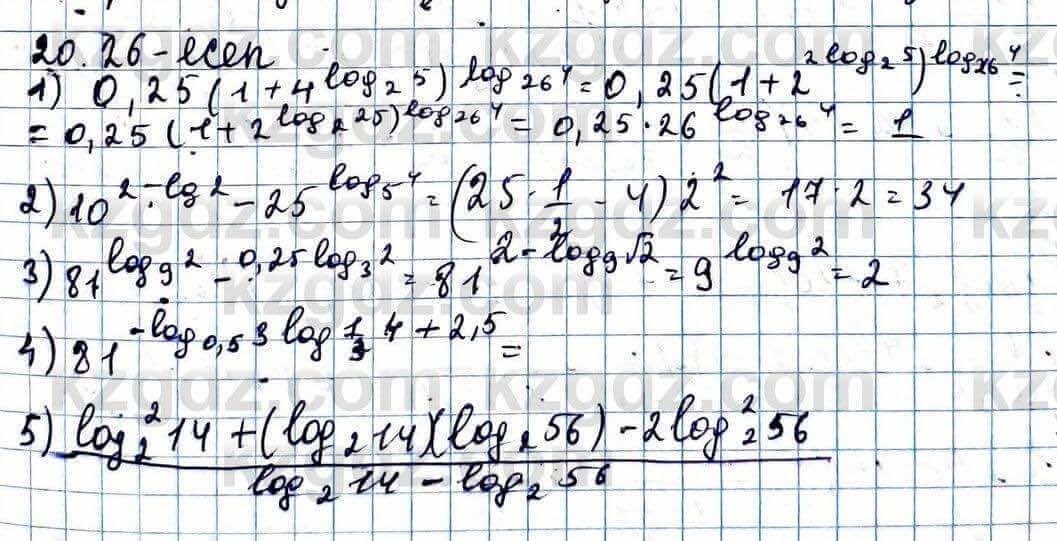 20.26-есеп
1) 0,25(1+4^(log₂5))^(log₂₆4) = 0,25(1+2^(2log₂5))^(log₂₆4) =
= 0,25(1+2^(log₂25))^(log₂₆4) = 0,25·26^(log₂₆4) = 1
2) 10^(2-lg2) - 25^(log₅4) = (25·1/2 - 4)2² = 17·2 = 34
3) 81^(log₉2 - 0,25log₃2) = 81^(2-log₉√2) = 9^(log₉2) = 2
4) 81^(-log₀,₅3 log_(1/3)4 + 2,5) =
5) log₂²14 + (log₂14)(log₂56) - 2log₂²56
log₂14 - log₂56
kzgdz.com